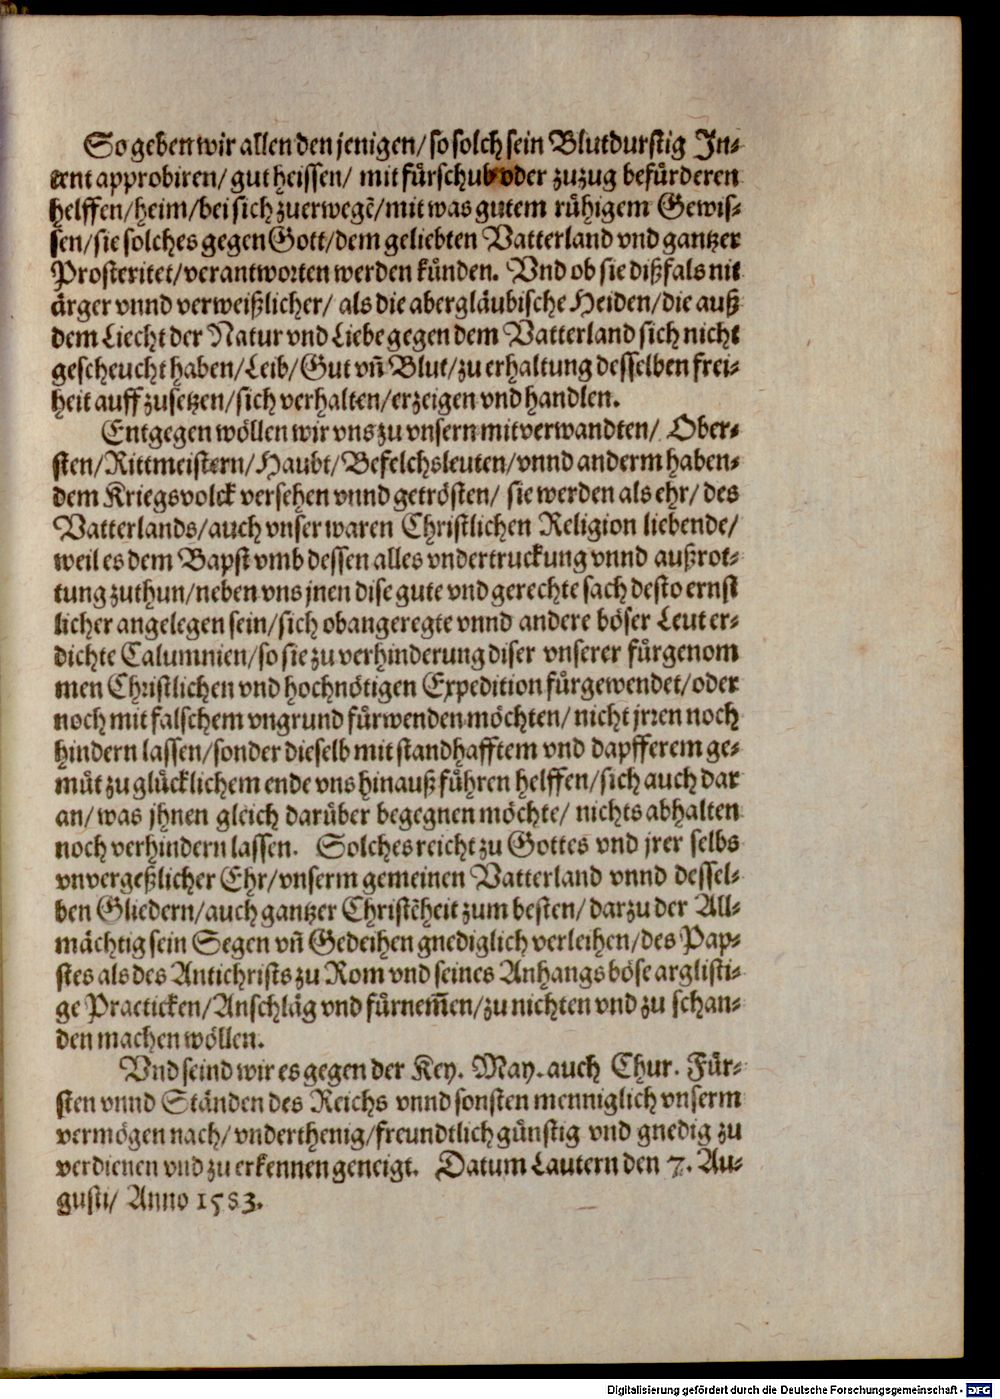 So geben wir allen den jenigen/ so solch sein Blutdurstig In-
tent approbiren/ gut heissen/ mit fürschub oder zuzug befürderen
helffen/ heim/ bei sich zuerwegẽ/ mit was gutem rühigem Gewis-
sen/ sie solches gegen Gott/ dem geliebten Vatterland vnd gantzer
Prosteritet/ verantworten werden künden. Vnd ob sie dißfals nit
ärger vnnd verweißlicher/ als die abergläubische Heiden/ die auß
dem Liecht der Natur vnd Liebe gegen dem Vatterland sich nicht
gescheucht haben/ Leib/ Gut vñ Blut/ zu erhaltung desselben frei-
heit auff zusetzen/ sich verhalten/ erzeigen vnd handlen.
Entgegen wöllen wir vns zu vnsern mitverwandten/ Ober-
sten/ Rittmeistern/ Haubt/ Befelchsleuten/ vnnd anderm haben-
dem Kriegsvolck versehen vnnd getrösten/ sie werden als ehr/ des
Vatterlands/ auch vnser waren Christlichen Religion liebende/
weil es dem Bapst vmb dessen alles vndertruckung vnnd außrot-
tung zuthun/ neben vns jnen dise gute vnd gerechte sach desto ernst
licher angelegen sein/ sich obangeregte vnnd andere böser Leut er-
dichte Calumnien/ so sie zu verhinderung diser vnserer fürgenom
men Christlichen vnd hochnötigen Expedition fürgewendet/ oder
noch mit falschem vngrund fürwenden möchten/ nicht jrren noch
hindern lassen/ sonder dieselb mit standhafftem vnd dapfferem ge-
müt zu glücklichem ende vns hinauß führen helffen/ sich auch dar
an/ was jhnen gleich darüber begegnen möchte/ nichts abhalten
noch verhindern lassen. Solches reicht zu Gottes vnd jrer selbs
vnvergeßlicher Ehr/ vnserm gemeinen Vatterland vnnd dessel-
ben Gliedern/ auch gantzer Christẽheit zum besten/ darzu der All-
mächtig sein Segen vñ Gedeihen gnediglich verleihen/ des Pap-
stes als des Antichrists zu Rom vnd seines Anhangs böse arglisti-
ge Practicken/ Anschläg vnd fürnem̃en/ zu nichten vnd zu schan-
den machen wöllen.
Vnd seind wir es gegen der Key. May. auch Chur. Für-
sten vnnd Ständen des Reichs vnnd sonsten menniglich vnserm
vermögen nach/ vnderthenig/ freundtlich günstig vnd gnedig zu
verdienen vnd zu erkennen geneigt. Datum Lautern den 7. Au-
gusti/ Anno 1583.
Digitalisierung gefördert durch die Deutsche Forschungsgemeinschaft - DFG